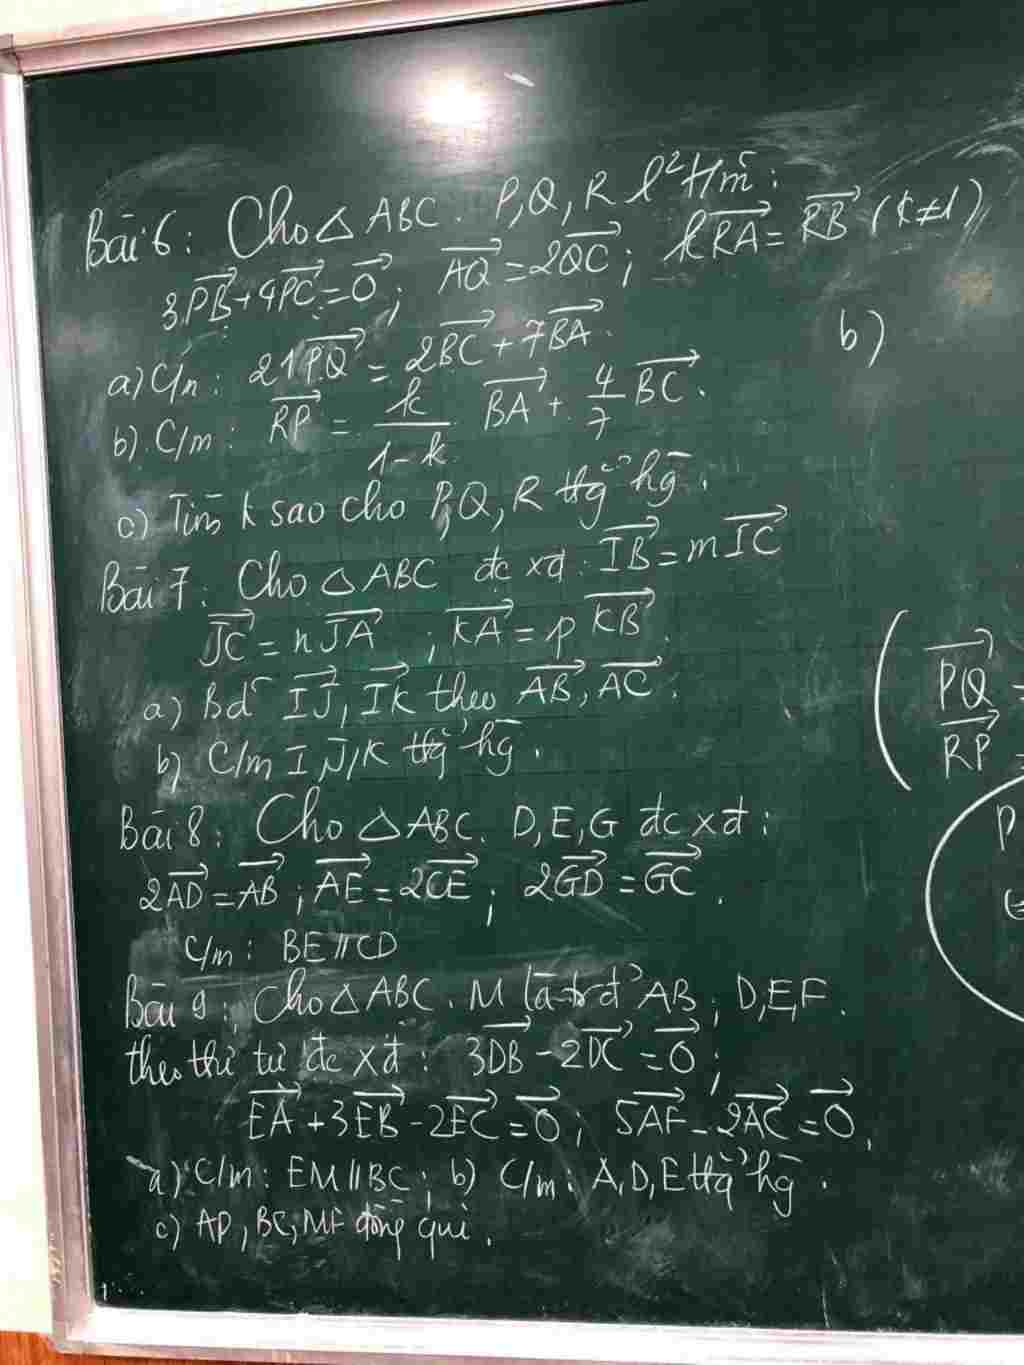 Bài 6: Cho △ABC. P, Q, R l² t/m:
3PB + 4PC = 0; AQ = 2QC; kRA = RB (k≠1)
a) C/m: 21PQ = 2BC + 7BA.
b)
b) C/m: RP = k/(1-k) BA + 4/7 BC.
c) Tìm k sao cho P, Q, R thg hg.
Bài 7: Cho △ABC đc xđ: IB = mIC
JC = nJA; KA = pKB.
a) Bd IJ, IK theo AB, AC.
b) C/m I, J, K thg hg.
Bài 8: Cho △ABC. D, E, G đc xđ:
2AD = AB; AE = 2CE; 2GD = GC.
C/m: BE // CD
Bài 9: Cho △ABC. M là trđ AB; D, E, F.
theo thứ tự đc xđ: 3DB - 2DC = 0;
EA + 3EB - 2EC = 0; 5AF - 2AC = 0.
a) C/m: EM // BC; b) C/m: A, D, E thg hg.
c) AD, BC, MF đồng qui.
PQ
RP
P